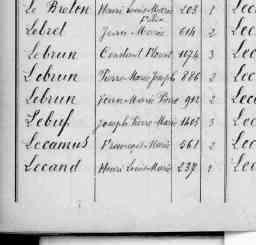 Le Breton Henri Louis Marie 203 1 Le
Lebret Jean Marie 614 2 Lec
Lebrun Constant 1674 3 Lec
Lebrun Pierre Marie Joseph 886 2 Lec
Lebrun Jean Marie Pierre 902 2 Lec
Lebuf Joseph Pierre Marie 1403 3 Lec
Lecamus François Marie 561 2 Lec
Lecand Henri Louis Marie 237 1 Lec